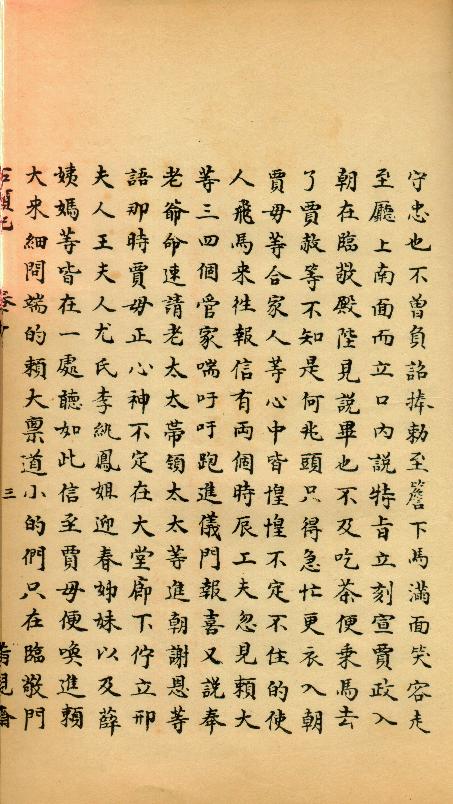 守忠也不曾負詔捧勅至簷下馬滿面笑容走
至廳上南面而立口內說特旨立刻宣賈政入
朝在臨敬殿陛見說畢也不及吃茶便乘馬去
了賈赦等不知是何兆頭只得急忙更衣入朝
賈母等合家人等心中皆惶惶不定不住的使
人飛馬來徃報信有兩個時辰工夫忽見賴大
等三四個管家喘吁吁跑進儀門報喜又說奉
老爺命速請老太太帶領太太等進朝謝恩等
語那時賈母正心神不定在大堂廊下佇立邢
夫人王夫人尤氏李紈鳳姐迎春姊妹以及薛
姨媽等皆在一處聽如此信至賈母便喚進賴
大來細問端的賴大禀道小的們只在臨敬門
三